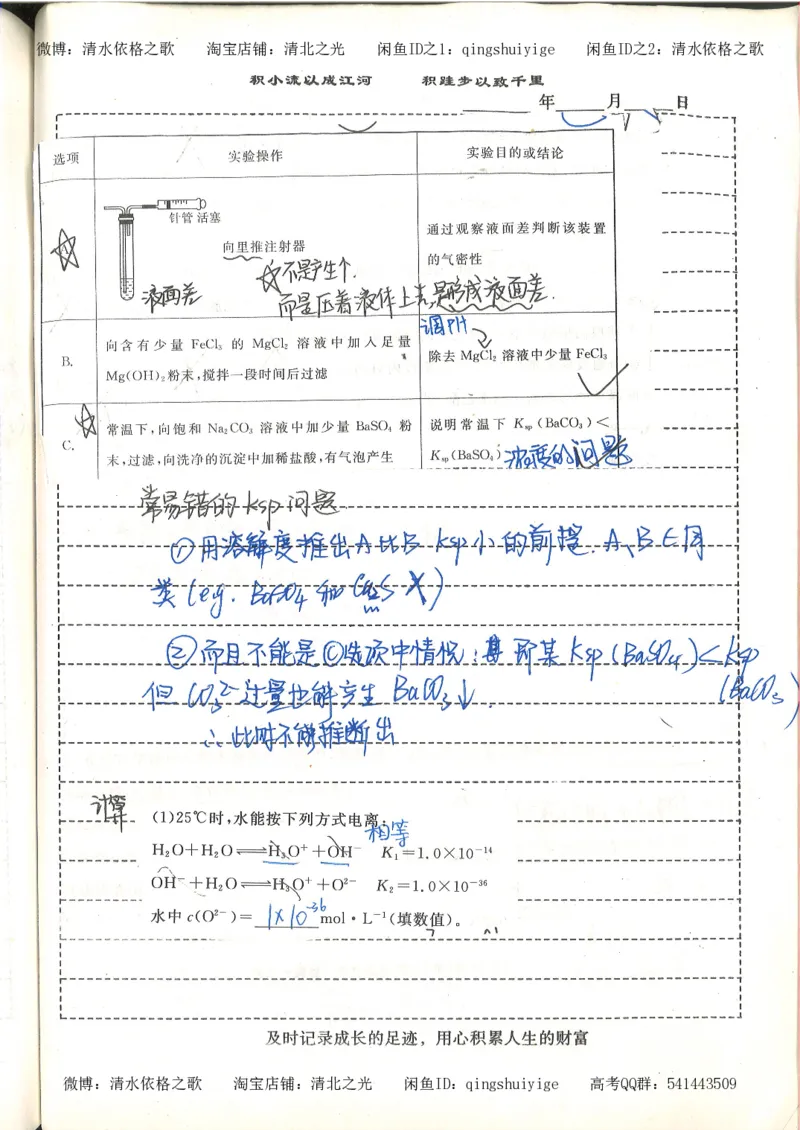 微博：清水依格之歌 淘宝店铺：清北之光 闲鱼ID之1：qingshuiyige 闲鱼ID之2：清水依格之歌
积小流以成江河 积跬步以致千里
年 月 日
选项 实验操作 实验目的或结论
针管 活塞
向里推注射器
通过观察液面差判断该装置
的气密性
不是产生个.
液面差
而是压着液体上去,是形成液面差.
调PH
B. 向含有少量 FeCl₃ 的 MgCl₂ 溶液中加入足量
Mg(OH)₂粉末,搅拌一段时间后过滤
除去 MgCl₂ 溶液中少量 FeCl₃
C. 常温下,向饱和 Na₂CO₃ 溶液中加少量 BaSO₄ 粉
末,过滤,向洗净的沉淀中加稀盐酸,有气泡产生
说明常温下 Ksp(BaCO₃)<
Ksp(BaSO₄) 浓度的问题
常易错的 Ksp 问题
①用溶解度推出A比B Ksp小的前提. A、B∈同
类 (eg. BaSO₄ 和 CuS X)
②而且不能是©选项中情况: 即某 Ksp (BaSO₄)<Ksp
(BaCO₃)
但 CO₃²⁻过量也能产生 BaCO₃↓.
∴此时不能推断出
计算
(1)25℃时,水能按下列方式电离:
相等
H₂O+H₂O⇌H₃O⁺+OH⁻ K₁=1.0×10⁻¹⁴
OH⁻+H₂O⇌H₃O⁺+O²⁻ K₂=1.0×10⁻³⁶
水中 c(O²⁻)= 1×10⁻³⁶ mol·L⁻¹(填数值)。
及时记录成长的足迹，用心积累人生的财富
微博：清水依格之歌 淘宝店铺：清北之光 闲鱼ID：qingshuiyige 高考QQ群：541443509